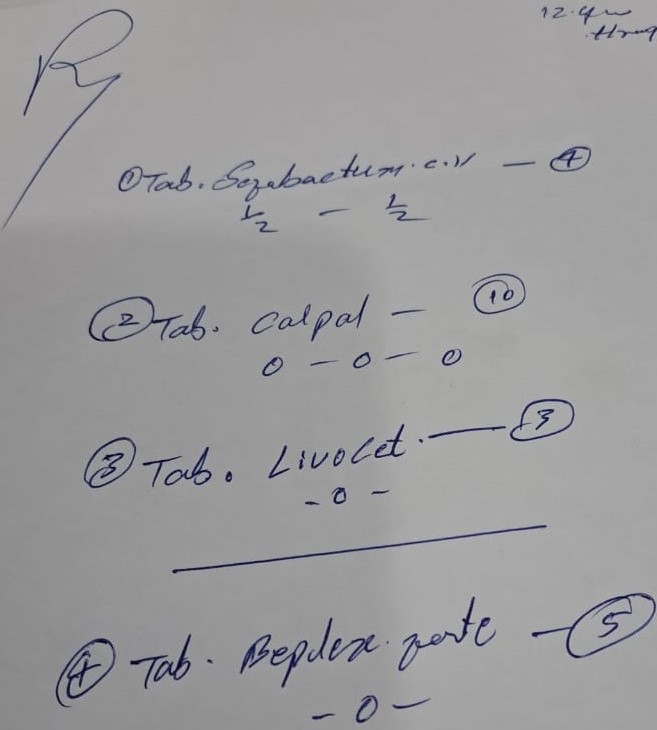 Rx
① Tab. Sezabactum. c.v — ④
1/2 — 1/2
② Tab. Calpal — ⑩
0 — 0 — 0
③ Tab. Livocet. — ③
- 0 -
④ Tab. Beplex forte — ⑤
- 0 -